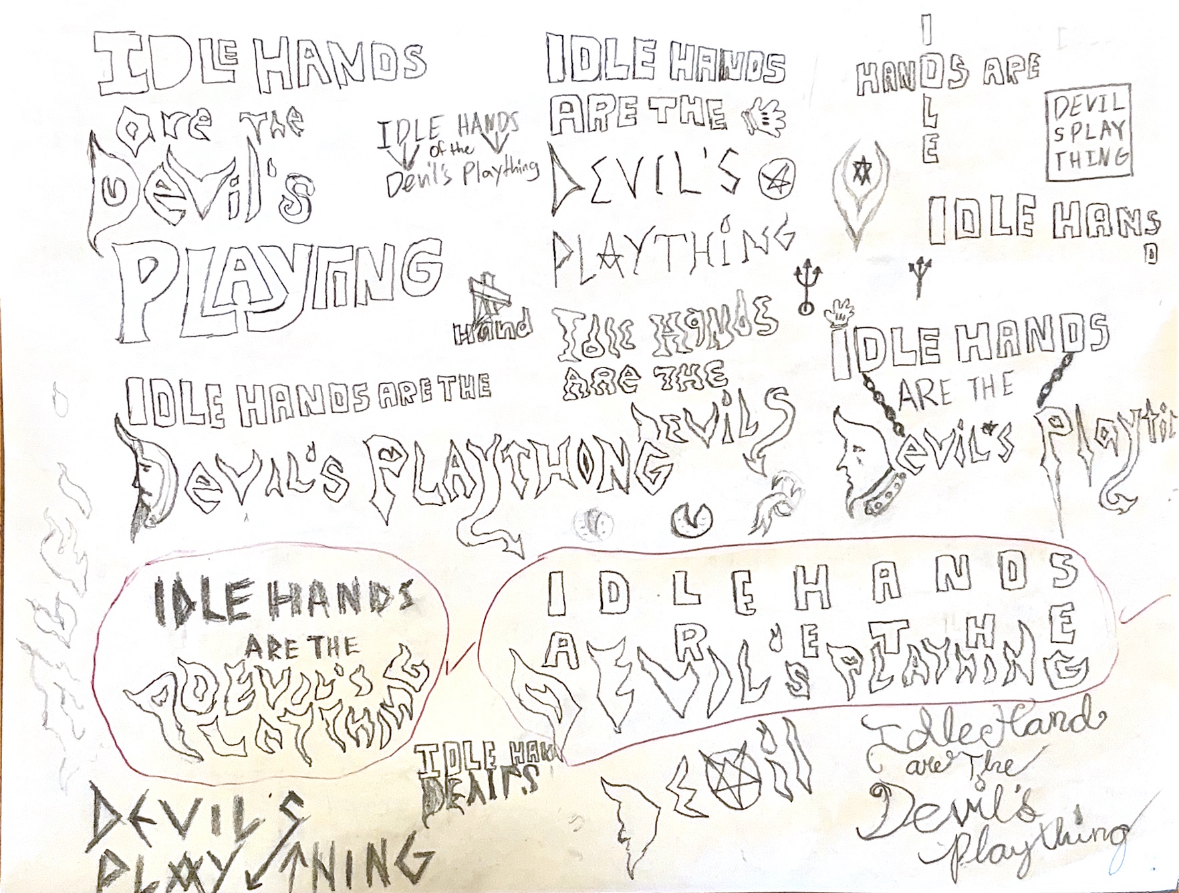 IDLE HANDS
are the
Devil's
PLAYTING
IDLE HANDS
of the
Devil's Plaything
IDLE HANDS
ARE THE
DEVIL'S
PLAYTHiNG
IDLE
HANDS ARE
DEVIL
SPLAY
THING
IDLE HANS
D
Hand
IDLE HANDS
ARE THE
DEVILS
IDLE HANDS
ARE THE
Devil's Playti
IDLE HANDS ARE THE
DeVIL'S PLAYTHONG
IDLE HANDS
ARE THE
DEVIL'S
PLAYTHING
IDLE HANDS
ARE THE
DEVIL'S PLAYTHING
IDLE HAN
DEVil
Idle Hand
are The
Devil's
Plaything
DEVIL'S
PLAY THING